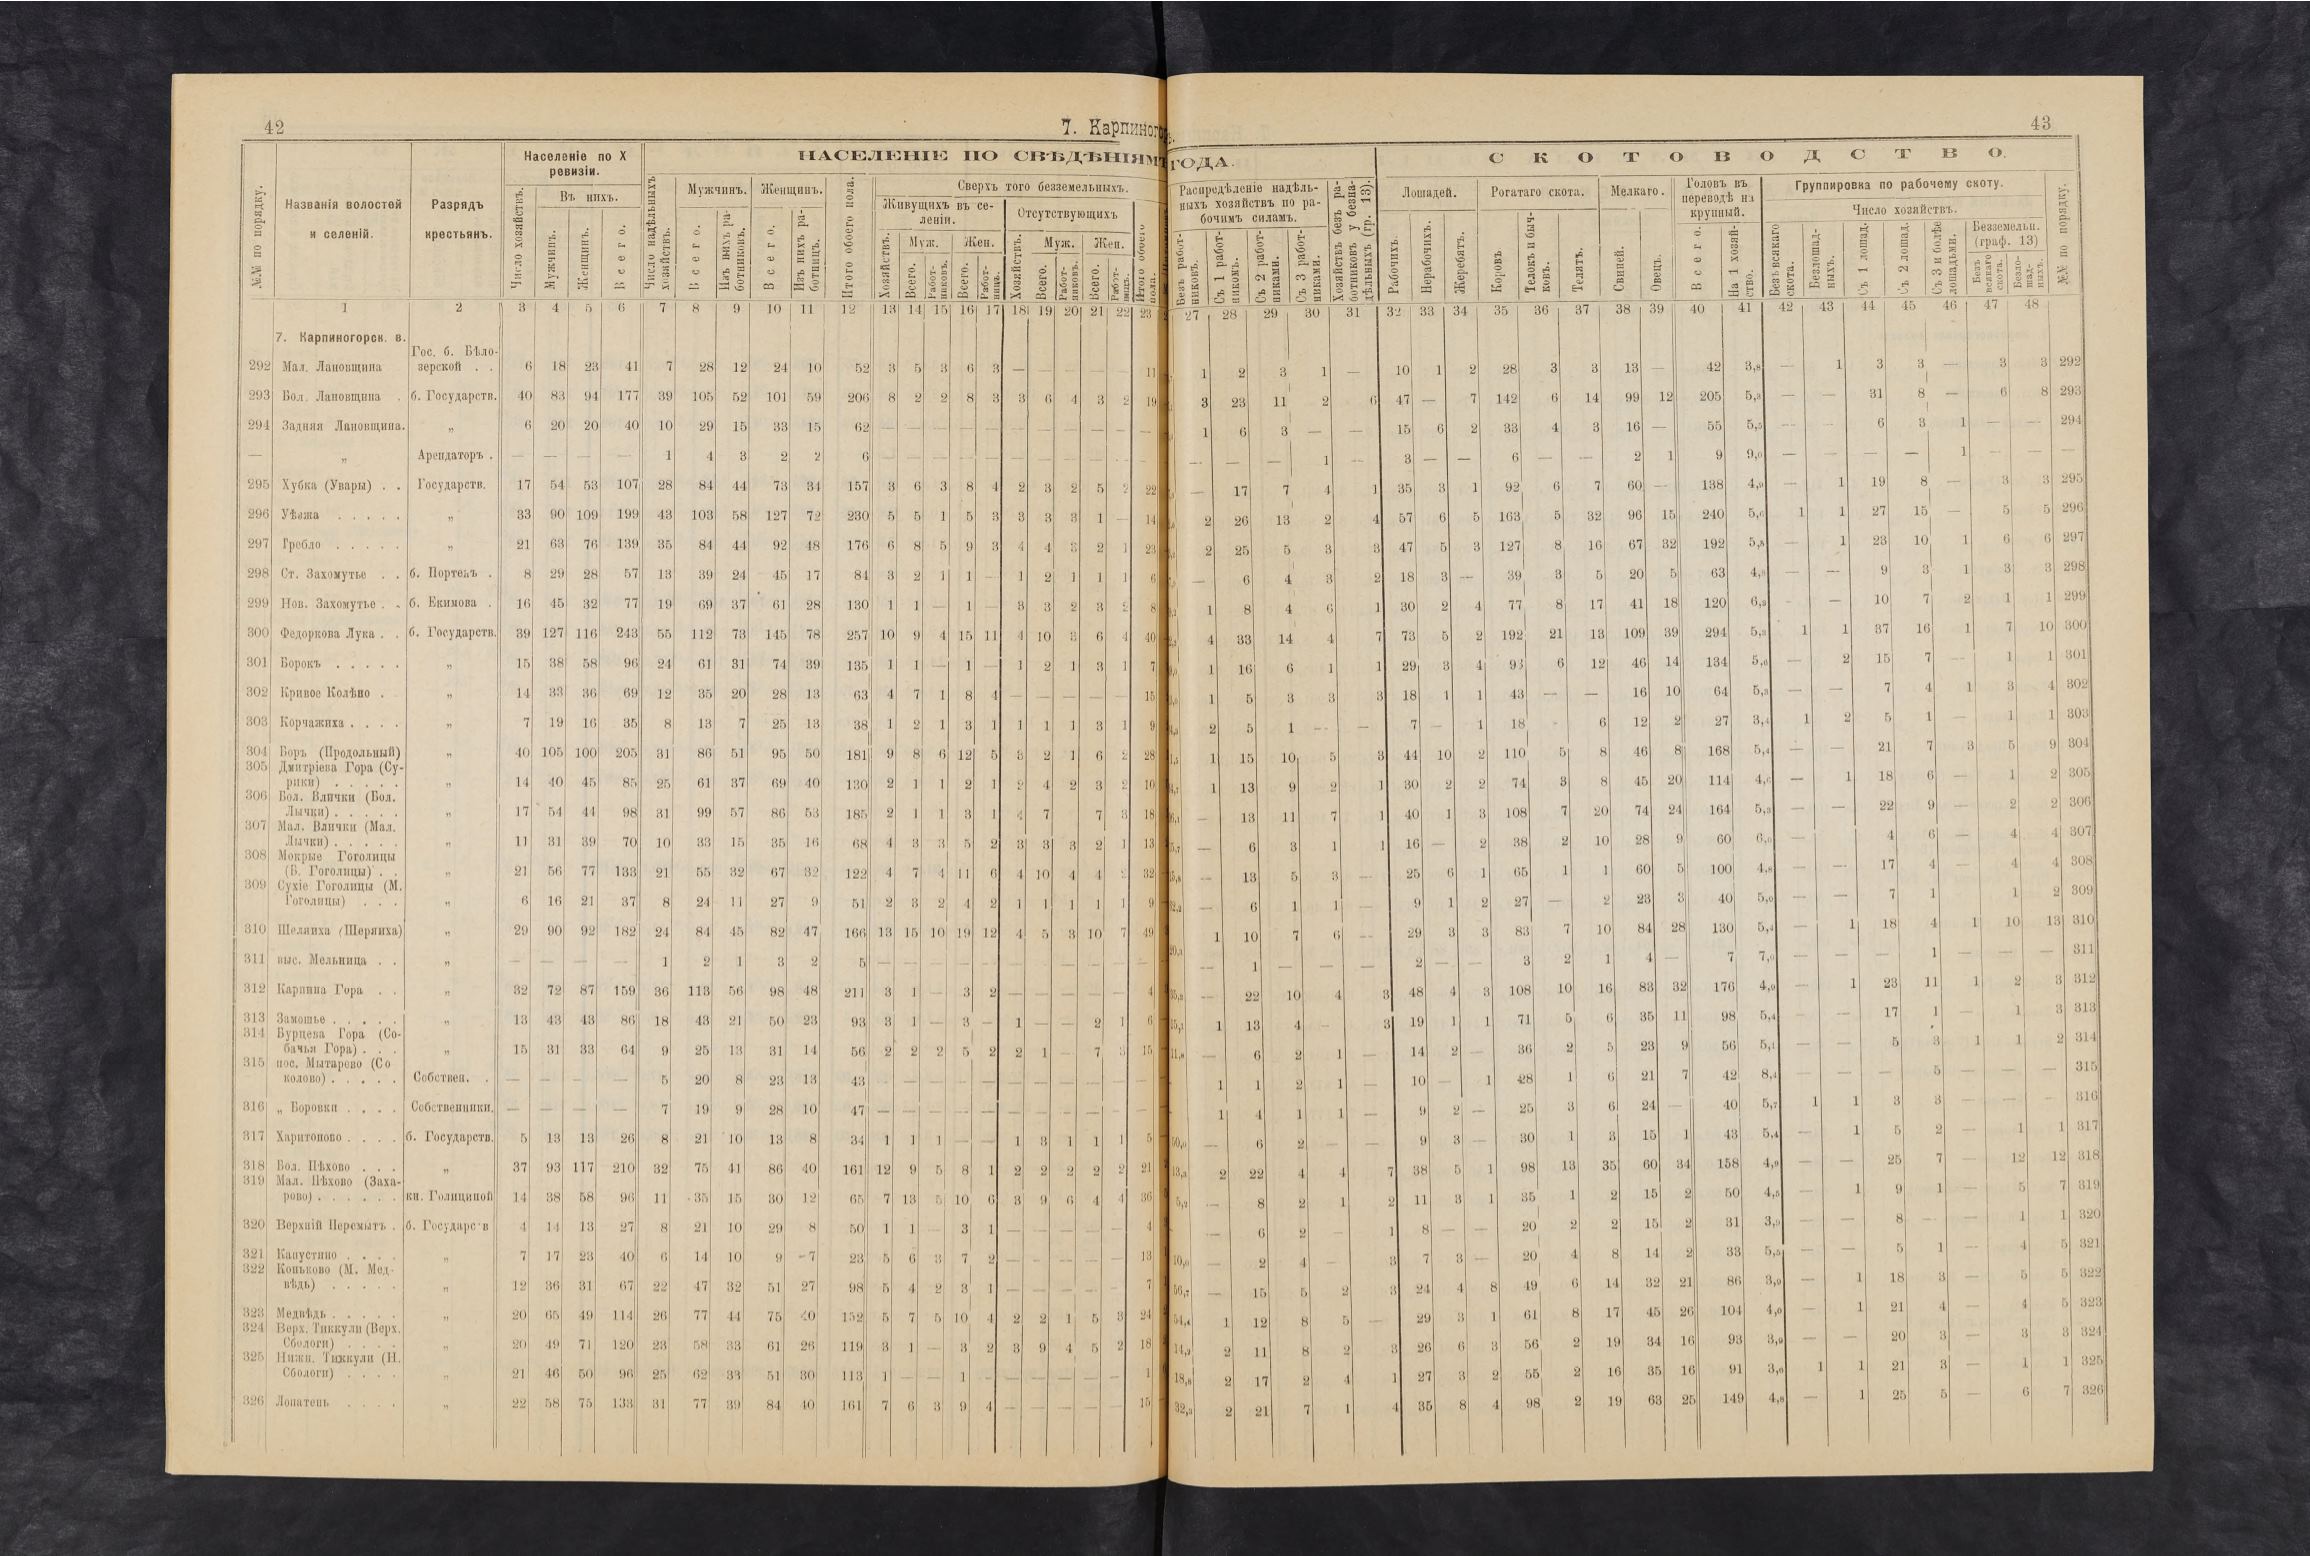 42
7. Карпиногор
43
НАСЕЛЕНІЕ ПО СВѢДѢНІЯМЪ
ГОДА.
СКОТОВОДСТВО.
№№ по порядку.
Названія волостей и селеній.
Разрядъ крестьянъ.
Населеніе по X ревизіи.
Число хозяйствъ.
Въ нихъ.
Мужчинъ.
Женщинъ.
Всего.
Число надѣльныхъ хозяйствъ.
Мужчинъ.
Всего.
Изъ нихъ работниковъ.
Женщинъ.
Всего.
Изъ нихъ работницъ.
Итого обоего пола.
Сверхъ того безземельныхъ.
Живущихъ въ селеніи.
Отсутствующихъ
Хозяйствъ.
Муж.
Жен.
Всего.
Работниковъ.
Всего.
Работницъ.
Хозяйствъ.
Муж.
Жен.
Всего.
Работниковъ.
Всего.
Работницъ.
Итого обоего пола.
Распредѣленіе надѣльныхъ хозяйствъ по рабочимъ силамъ.
Безъ работниковъ.
Съ 1 работникомъ.
Съ 2 работниками.
Съ 3 работниками.
Хозяйствъ безъ работниковъ у безнадѣльныхъ (гр. 13).
Лошадей.
Рабочихъ.
Нерабочихъ.
Жеребятъ.
Рогатаго скота.
Коровъ.
Телокъ и бычковъ.
Телятъ.
Мелкаго.
Свиней.
Овецъ.
Головъ въ переводѣ на крупный.
Всего.
На 1 хозяйство.
Группировка по рабочему скоту.
Число хозяйствъ.
Безъ всякаго скота.
Безлошадныхъ.
Съ 1 лошад.
Съ 2 лошад.
Съ 3 и болѣе лошадьми.
Безземельн. (граф. 13)
Безъ всякаго скота.
Безлошадныхъ.
№№ по порядку.
1 2 3 4 5 6 7 8 9 10 11 12 13 14 15 16 17 18 19 20 21 22 23 27 28 29 30 31 32 33 34 35 36 37 38 39 40 41 42 43 44 45 46 47 48
7. Карпиногорск. в.
292 Мал. Лановщина Гос. б. Бѣлозерской . . 6 18 23 41 7 28 12 24 10 52 3 5 3 6 3 — — — — — 11 1 2 3 1 — 10 1 2 28 3 3 13 — 42 3,8 — 1 3 3 — 3 3 292
293 Бол. Лановщина . б. Государств. 40 83 94 177 39 105 52 101 59 206 8 2 2 8 3 3 6 4 3 2 19 3 23 11 2 6 47 — 7 142 6 14 99 12 205 5,3 — — 31 8 — 6 8 293
294 Задняя Лановщина. „ 6 20 20 40 10 29 15 33 15 62 — — — — — — — — — — — 1 6 3 — — 15 6 2 33 4 3 16 — 55 5,5 — — 6 3 1 — — 294
— „ Арендаторъ . — — — — 1 4 3 2 2 6 — — — — — — — — — — — — — — 1 — 3 — — 6 — — 2 1 9 9,0 — — — — 1 — — —
295 Хубка (Увары) . . Государств. 17 54 53 107 28 84 44 73 34 157 3 6 3 8 4 2 3 2 5 2 22 — 17 7 4 1 35 3 1 92 6 7 60 — 138 4,9 — 1 19 8 — 3 3 295
296 Уѣзжа . . . . . „ 33 90 109 199 43 103 58 127 72 230 5 5 1 5 3 3 3 3 1 — 14 2 26 13 2 4 57 6 5 163 5 32 96 15 240 5,6 1 1 27 15 — 5 5 296
297 Гребло . . . . . „ 21 63 76 139 35 84 44 92 48 176 6 8 5 9 3 4 4 3 2 1 23 2 25 5 3 3 47 5 3 127 8 16 67 32 192 5,5 — 1 23 10 1 6 6 297
298 Ст. Захомутье . . б. Портенъ . 8 29 28 57 13 39 24 45 17 84 3 2 1 1 — 1 2 1 1 1 6 — 6 4 3 2 18 3 — 39 3 5 20 5 63 4,8 — — 9 3 1 3 3 298
299 Нов. Захомутье . . б. Екимова . 16 45 32 77 19 69 37 61 28 130 1 1 — 1 — 3 3 2 3 2 8 1 8 4 6 1 30 2 4 77 8 17 41 18 120 6,3 - — 10 7 2 1 1 299
300 Федоркова Лука . . б. Государств. 39 127 116 243 55 112 73 145 78 257 10 9 4 15 11 4 10 3 6 4 40 4 33 14 4 7 73 5 2 192 21 13 109 39 294 5,3 1 1 37 16 1 7 10 300
301 Борокъ . . . . . „ 15 38 58 96 24 61 31 74 39 135 1 1 — 1 — 1 2 1 3 1 7 1 16 6 1 1 29 3 4 93 6 12 46 14 134 5,6 — 2 15 7 — 1 1 301
302 Кривое Колѣно . „ 14 33 36 69 12 35 20 28 13 63 4 7 1 8 4 — — — — — 15 1 5 3 3 3 18 1 1 43 — — 16 10 64 5,3 — — 7 4 1 3 4 302
303 Корчажиха . . . . „ 7 19 16 35 8 13 7 25 13 38 1 2 1 3 1 1 1 1 3 1 9 2 5 1 — — 7 — 1 18 - 6 12 2 27 3,4 1 2 5 1 — 1 1 303
304 Боръ (Продольный) „ 40 105 100 205 31 86 51 95 50 181 9 8 6 12 5 3 2 1 6 2 28 1 15 10 5 3 44 10 2 110 5 8 46 8 168 5,4 — — 21 7 3 5 9 304
305 Дмитріева Гора (Сурики) . . . . . „ 14 40 45 85 25 61 37 69 40 130 2 1 1 2 1 2 4 2 3 2 10 1 13 9 2 1 30 2 2 74 3 8 45 20 114 4,6 — 1 18 6 — 1 2 305
306 Бол. Влички (Бол. Лычки) . . . . . „ 17 54 44 98 31 99 57 86 53 185 2 1 1 3 1 4 7 7 3 18 — 13 11 7 1 40 1 3 108 7 20 74 24 164 5,3 — — 22 9 — 2 2 306
307 Мал. Влички (Мал. Лычки) . . . . . „ 11 31 39 70 10 33 15 35 16 68 4 3 3 5 2 3 3 3 2 1 13 — 6 3 1 1 16 — 2 38 2 10 28 9 60 6,0 — 4 6 — 4 4 307
308 Мокрые Гоголицы (Б. Гоголицы) . . „ 21 56 77 133 21 55 32 67 32 122 4 7 4 11 6 4 10 4 4 2 32 — 13 5 3 — 25 6 1 65 1 1 60 5 100 4,8 — — 17 4 — 4 4 308
309 Сухіе Гоголицы (М. Гоголицы) . . . „ 6 16 21 37 8 24 11 27 9 51 2 3 2 4 2 1 1 1 1 1 9 — 6 1 1 — 9 1 2 27 — 2 23 3 40 5,0 — — 7 1 1 2 309
310 Шеляиха (Шеряиха) „ 29 90 92 182 24 84 45 82 47 166 13 15 10 19 12 4 5 3 10 7 49 1 10 7 6 — 29 3 3 83 7 10 84 28 130 5,4 — 1 18 4 1 10 13 310
311 выс. Мельница . . „ — — — — 1 2 1 3 2 5 — — — — — — — — — — — — 1 — — — 2 — — 3 2 1 4 — 7 7,0 — — — 1 — — — 311
312 Карпина Гора . . „ 32 72 87 159 36 113 56 98 48 211 3 1 — 3 2 — — — — — 4 — 22 10 4 3 48 4 3 108 10 16 83 32 176 4,9 — 1 23 11 1 2 3 312
313 Замошье . . . . . „ 13 43 43 86 18 43 21 50 23 93 3 1 — 3 — 1 — — 2 1 6 1 13 4 - 3 19 1 1 71 5 6 35 11 98 5,4 — — 17 1 — 1 3 313
314 Бурцева Гора (Собачья Гора) . . . „ 15 31 33 64 9 25 13 31 14 56 2 2 2 5 2 2 1 — 7 3 15 — 6 2 1 — 14 2 — 36 2 5 23 9 56 5,1 — — 5 3 1 1 2 314
315 пос. Мытарево (Соколово) . . . . . Собствен. . — — — — 5 20 8 23 13 43 — — — — — — — — — — — 1 1 2 1 — 10 — 1 28 1 6 21 7 42 8,4 — — — 5 — — — 315
316 „ Боровки . . . . Собственники. — — — — 7 19 9 28 10 47 — — — — — — — — — — — 1 4 1 1 — 9 2 — 25 3 6 24 — 40 5,7 1 1 3 3 — — — 316
317 Харитоново . . . . б. Государств. 5 13 13 26 8 21 10 13 8 34 1 1 1 — — 1 3 1 1 1 5 — 6 2 — — 9 3 — 30 1 3 15 1 43 5,4 — 1 5 2 — 1 1 317
318 Бол. Пѣхово . . . „ 37 93 117 210 32 75 41 86 40 161 12 9 5 8 1 2 2 2 2 2 21 2 22 4 4 7 38 5 1 98 13 35 60 34 158 4,9 — — 25 7 — 12 12 318
319 Мал. Пѣхово (Захарово) . . . . . . кн. Голициной 14 38 58 96 11 35 15 30 12 65 7 13 5 10 6 3 9 6 4 4 36 — 8 2 1 2 11 3 1 35 1 2 15 2 50 4,5 — 1 9 1 — 5 7 319
320 Верхній Перемытъ . б. Государств 4 14 13 27 8 21 10 29 8 50 1 1 — 3 1 — — — — — 4 — 6 2 — 1 8 — — 20 2 2 15 2 31 3,9 — — 8 - — 1 1 320
321 Капустино . . . . „ 7 17 23 40 6 14 10 9 7 23 5 6 3 7 2 — — — — — 13 — 2 4 — 3 7 3 — 20 4 8 14 2 33 5,5 — — 5 1 — 4 5 321
322 Коньково (М. Медвѣдь) . . . . . „ 12 36 31 67 22 47 32 51 27 98 5 4 2 3 1 — — — — — 7 — 15 5 2 3 24 4 8 49 6 14 32 21 86 3,9 — 1 18 3 — 5 5 322
323 Медвѣдь . . . . . „ 20 65 49 114 26 77 44 75 40 152 5 7 5 10 4 2 2 1 5 3 24 1 12 8 5 — 29 3 1 61 8 17 45 26 104 4,0 — 1 21 4 — 4 5 323
324 Верх. Тиккули (Верх. Сбологи) . . . . „ 20 49 71 120 23 58 33 61 26 119 3 1 — 3 2 3 9 4 5 2 18 2 11 8 2 3 26 6 3 56 2 19 34 16 93 3,9 — — 20 3 — 3 3 324
325 Нижн. Тиккули (Н. Сбологи) . . . . „ 21 46 50 96 25 62 33 51 30 113 1 — — 1 — — — — — — 1 2 17 2 4 1 27 3 2 55 2 16 35 16 91 3,6 1 1 21 3 — 1 1 325
326 Лопатень . . . . „ 22 58 75 133 31 77 39 84 40 161 7 6 3 9 4 — — — — — 15 2 21 7 1 4 35 8 4 98 2 19 63 25 149 4,8 — 1 25 5 — 6 7 326